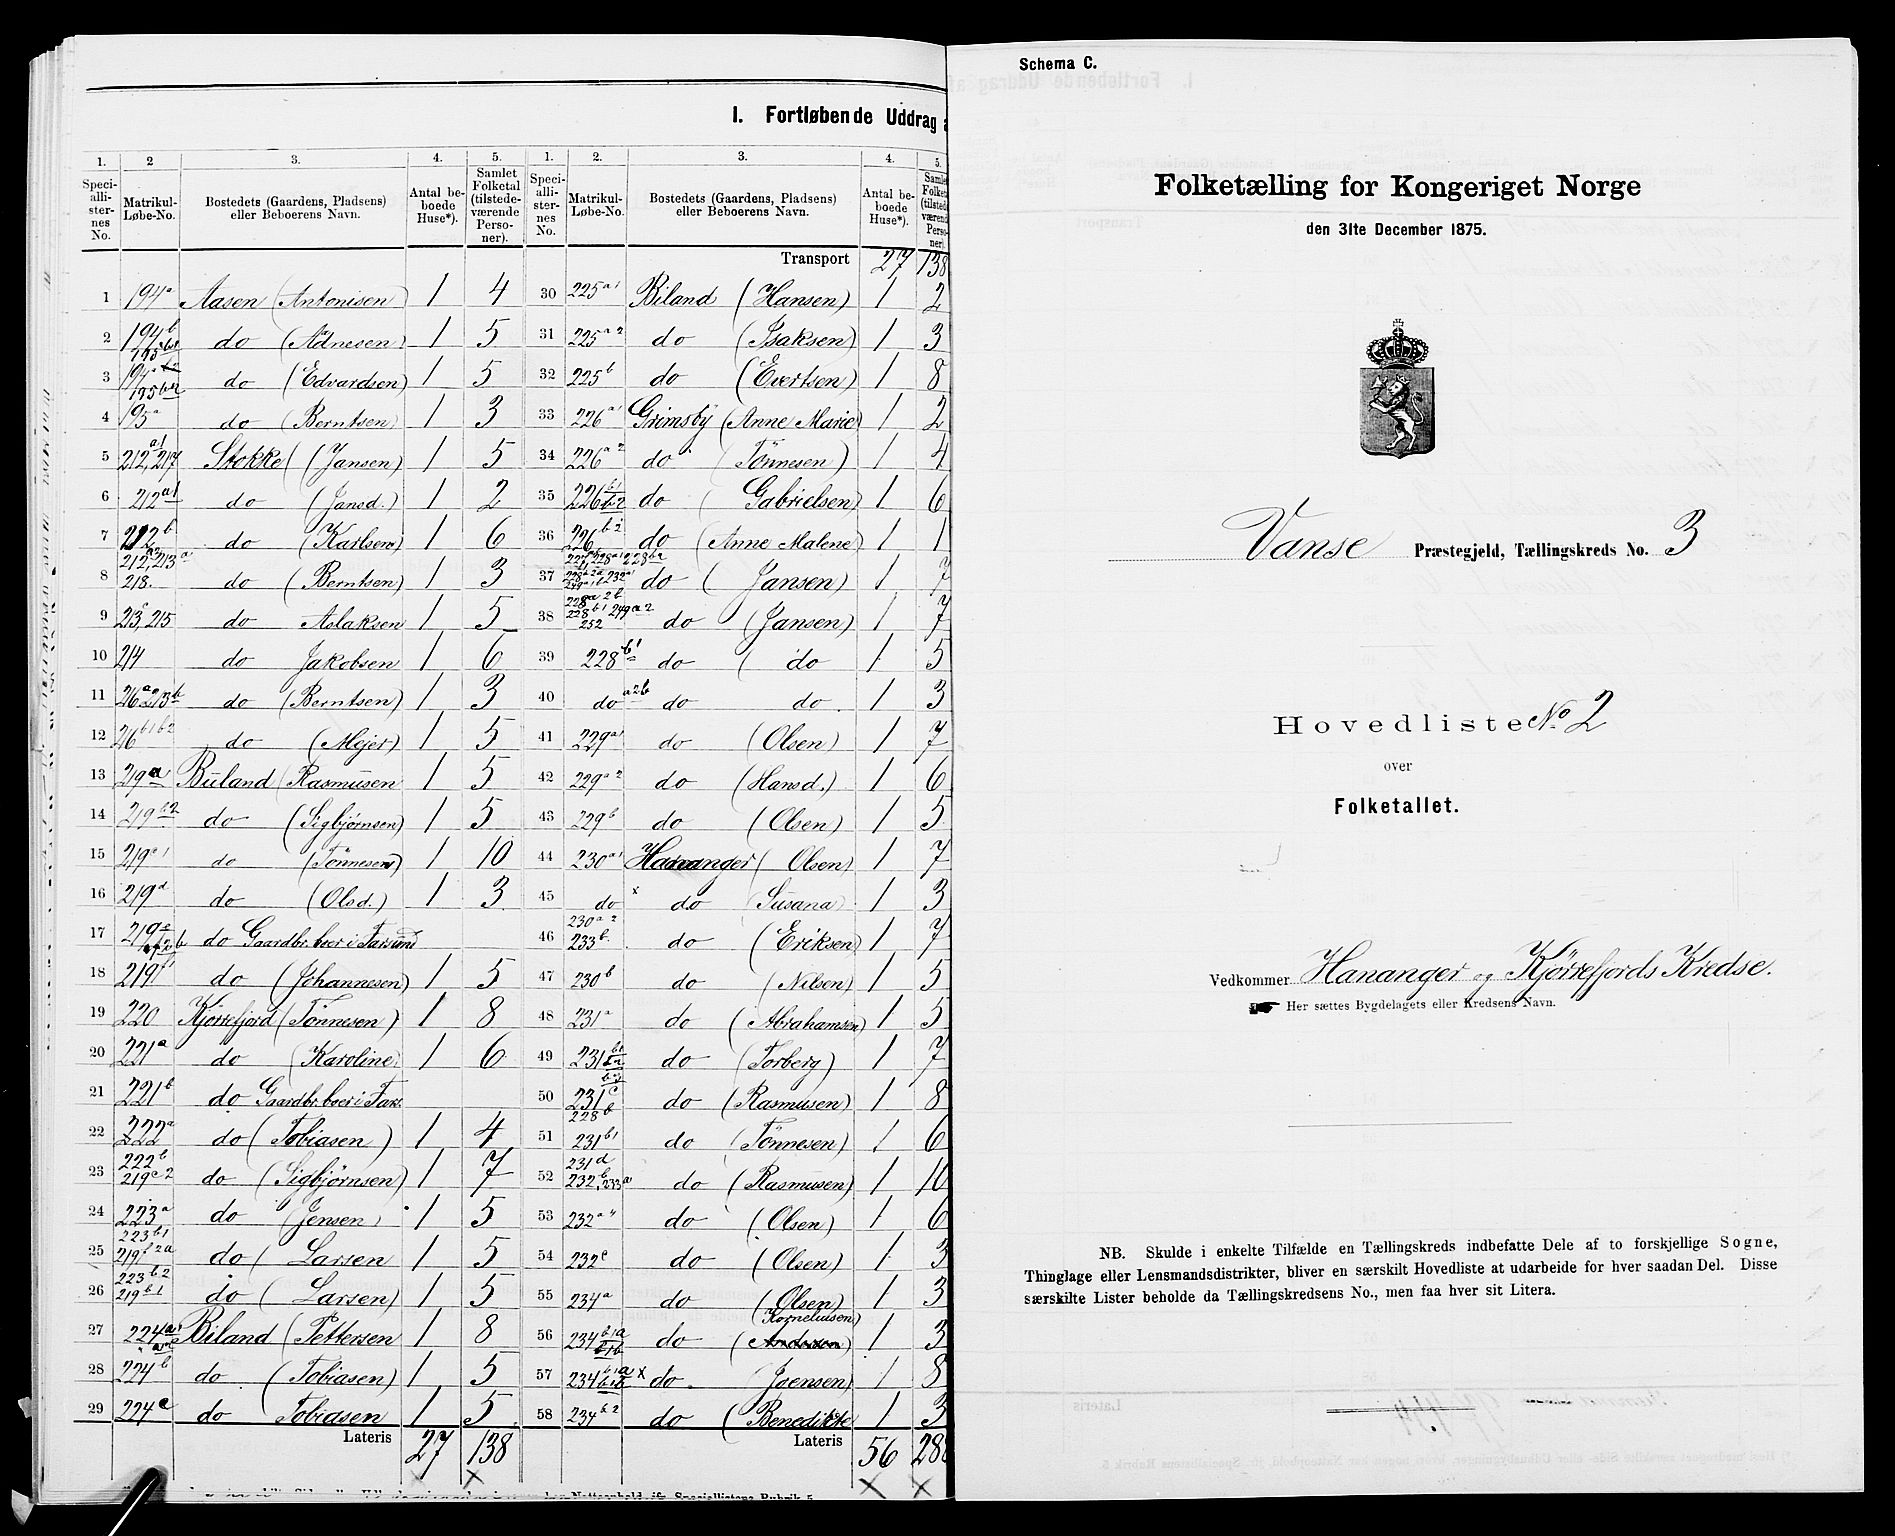 I. Fortløbende Uddrag a
1. 2 3. 4. 5. 1. 2. 3. 4. 5.
Speciallisternes No. Matrikul-Løbe-No. Bostedets (Gaardens, Pladsens) eller Beboerens Navn. Antal beboede Huse*). Samlet Folketal (tilstedeværende Personer). Speciallisternes No. Matrikul-Løbe-No. Bostedets (Gaardens, Pladsens) eller Beboerens Navn. Antal beboede Huse*). Samlet Folketal (tilstedeværende Personer).
Transport 27 138
1 194a Aasen (Antonisen) 1 4
2 194b do (Adnesen) 1 5
3 do (Edvardsen) 1 5
4 195a do (Berntsen) 1 3
5 212a1, 217 Stokke (Jansen) 1 5
6 212a1 do (Jansd.) 1 2
7 212b do (Karlsen) 1 6
8 212, 213a 218. do (Berntsen) 1 3
9 213c, 215 do Aslaksen 1 5
10 214 do Jakobsen 1 6
11 216a 213b do (Berntsen) 1 3
12 216b1 b2 do (Mejer) 1 5
13 219a Büland (Rasmüsen 1 5
14 219b2 do (Sigbjørnsen) 1 5
15 219c1 do (Tönnesen) 1 10
16 219d do (Olsd.) 1 3
17 219e do Gaardbr. boer i Farsund
18 219f1 do (Johannesen) 1 5
19 220 Kjørrefjord (Tönnesen) 1 8
20 221a do (Karoline) 1 6
21 221b do Gaardbr. boer i Fars.
22 222a do (Tobiasen) 1 4
23 222b 219c2 do (Sigbjørnsen) 1 7
24 223a do (Jensen) 1 5
25 223b1 219f2a do (Larsen 1 5
26 223b2 219b1 do (Larsen) 1 5
27 224a1 Biland (Pettersen 1 8
28 224b do (Tobiasen) 1 5
29 224c do Tobiasen 1 5
Lateris 27 138
30 225a1 Biland (Hansen) 1 2
31 225a2 do (Isaksen) 1 3
32 225b do (Evertsen) 1 8
33 226a1 Grimsby (Anne Marie) 1 2
34 226a2 do (Tönnesen) 1 4
35 226b1 do (Gabrielsen) 1 6
36 226b2 do (Anne Malene) 1 1
37 do (Jansen) 1 7
38 228a2b 228b1 249a2 252 do (Jansen) 1 7
39 228b1 do (do 1 5
40 do a2b do do 1 3
41 229a1 do (Olsen) 1 7
42 229a2 do (Hansd.) 1 6
43 229b do (Olsen) 1 5
44 230a1 Hananger (Olsen) 1 7
45 do x do (Susana) 1 3
46 230a2 233b. do (Eriksen) 1 7
47 230b do (Nilsen) 1 5
48 231a do (Abrahamsen) 1 5
49 231b1 do (Torberg) 1 7
50 231c 228b do (Rasmusen) 1 8
51 231b1 do (Tönnesen) 1 6
52 231d 232b, 233a do (Rasmusen) 1 10
53 232a do (Olsen) 1 6
54 232c do (Olsen) 1 3
55 234a do (Olsen) 1 3
56 234b1a b1b do (Korneliusen) 1 3
57 234b1a x do (Joensen) 1 8
58 234b2 do (Benedikte 1 3
Lateris 56 288
Schema C.
Folketælling for Kongeriget Norge
den 31te December 1875.
Vanse Præstegjeld, Tællingskreds No. 3
Hovedliste No. 2
over
Folketallet.
Vedkommer Hananger og Kjørrefjords Kredse.
Her sættes Bygdelagets eller Kredsens Navn.
NB. Skulde i enkelte Tilfælde en Tællingskreds indbefatte Dele af to forskjellige Sogne,
Thinglage eller Lensmandsdistrikter, bliver en særskilt Hovedliste at udarbeide for hver saadan Del. Disse
særskilte Lister beholde da Tællingskredsens No., men faa hver sit Litera.